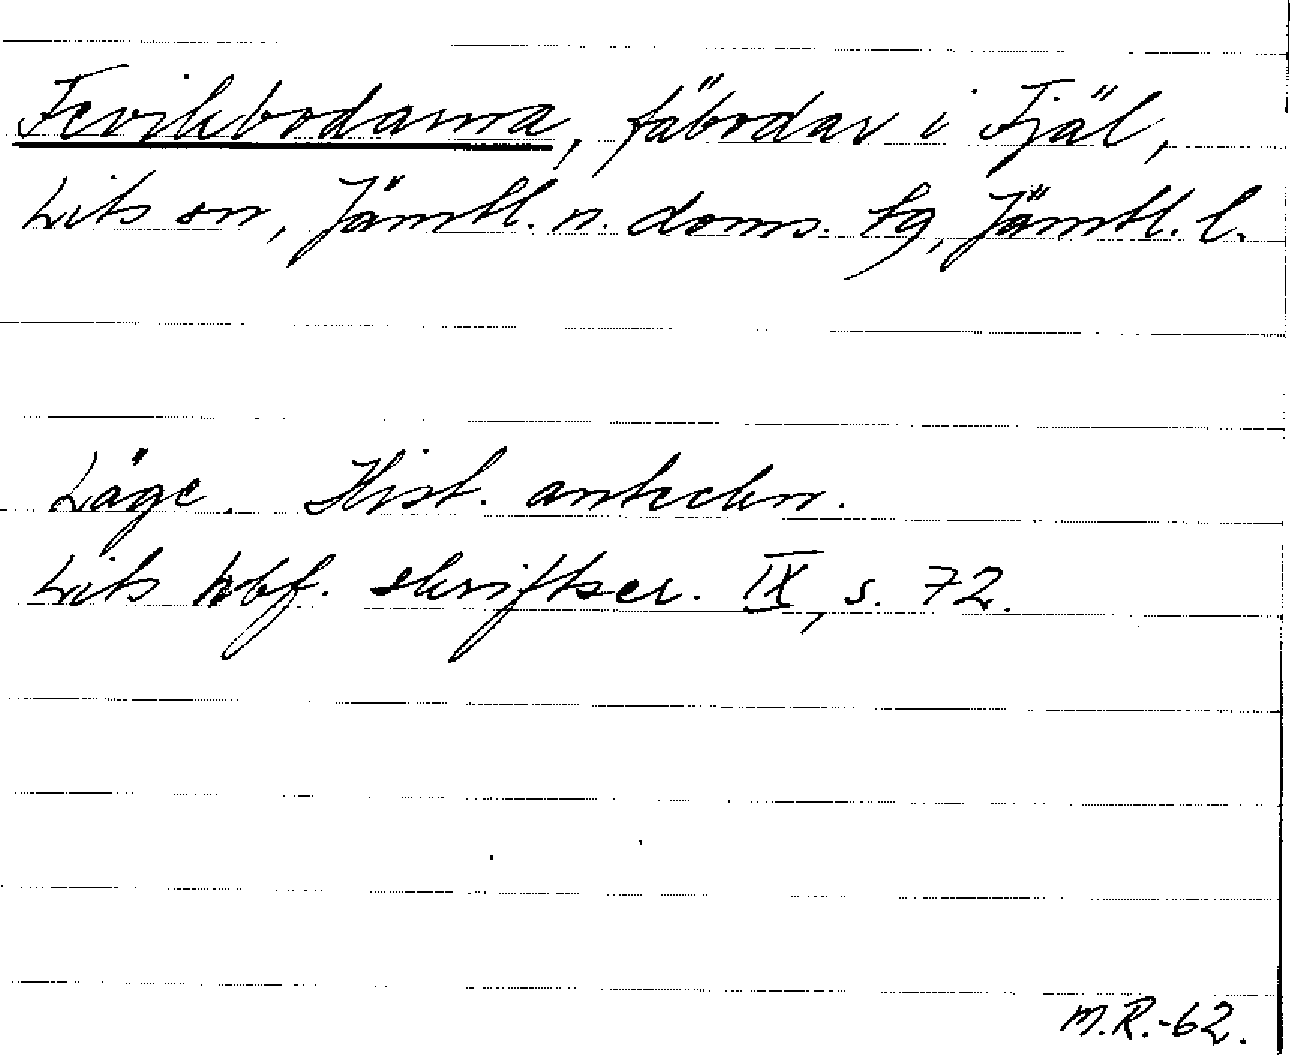 Fevikbodarna, fäbodar i Fjäl,
Lits sn, Jämtl. n. doms. tg, Jämtl. l.
Läge. Hist. anteckn.
Lits hbf. skriftser. IX, s. 72.
M.R.-62.